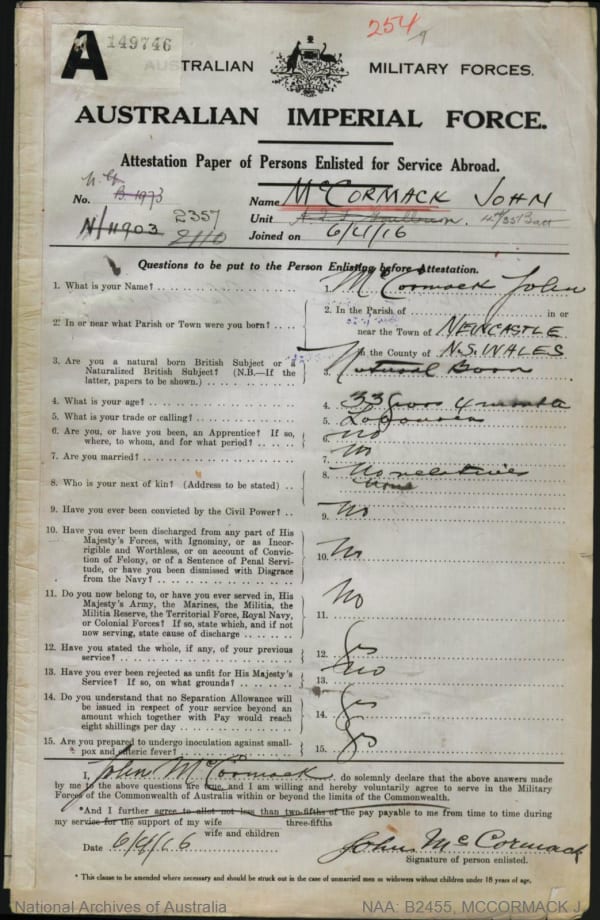 254
A 149746
AUSTRALIAN MILITARY FORCES.
AUSTRALIAN IMPERIAL FORCE.
Attestation Paper of Persons Enlisted for Service Abroad.
B.1973
No. Name McCORMACK JOHN
N/11903 2357 Unit 4th/35 Batt
2110 Joined on 6/4/16
Questions to be put to the Person Enlisting before Attestation.
1. What is your Name? 1. McCormack John
2. In or near what Parish or Town were you born? 2. In the Parish of in or
near the Town of NEWCASTLE
in the County of N.S.WALES
3. Are you a natural born British Subject or a
Naturalized British Subject? (N.B.—If the
latter, papers to be shown.) 3. Natural Born
4. What is your age? 4. 33 years 4 months
5. What is your trade or calling? 5. Labourer
6. Are you, or have you been, an Apprentice? If so,
where, to whom, and for what period? 6. No
7. Are you married? 7. No
8. Who is your next of kin? (Address to be stated) 8. No relatives
None
9. Have you ever been convicted by the Civil Power? 9. No
10. Have you ever been discharged from any part of His
Majesty's Forces, with Ignominy, or as Incor-
rigible and Worthless, or on account of Convic-
tion of Felony, or of a Sentence of Penal Servi-
tude, or have you been dismissed with Disgrace
from the Navy? 10. No
11. Do you now belong to, or have you ever served in, His
Majesty's Army, the Marines, the Militia, the
Militia Reserve, the Territorial Force, Royal Navy,
or Colonial Forces? If so, state which, and if not
now serving, state cause of discharge 11. No
12. Have you stated the whole, if any, of your previous
service? 12. Yes
13. Have you ever been rejected as unfit for His Majesty's
Service? If so, on what grounds? 13. No
14. Do you understand that no Separation Allowance will
be issued in respect of your service beyond an
amount which together with Pay would reach
eight shillings per day 14. Yes
15. Are you prepared to undergo inoculation against small-
pox and enteric fever? 15. Yes
I, John McCormack do solemnly declare that the above answers made
by me to the above questions are true, and I am willing and hereby voluntarily agree to serve in the Military
Forces of the Commonwealth of Australia within or beyond the limits of the Commonwealth.
*And I further agree to allot not less than two-fifths of the pay payable to me from time to time during
my service for the support of my wife three-fifths
wife and children
Date 6/4/16 John McCormack
Signature of person enlisted.
* This clause to be amended where necessary and should be struck out in the case of unmarried men or widowers without children under 18 years of age.
National Archives of Australia NAA: B2455, MCCORMACK J